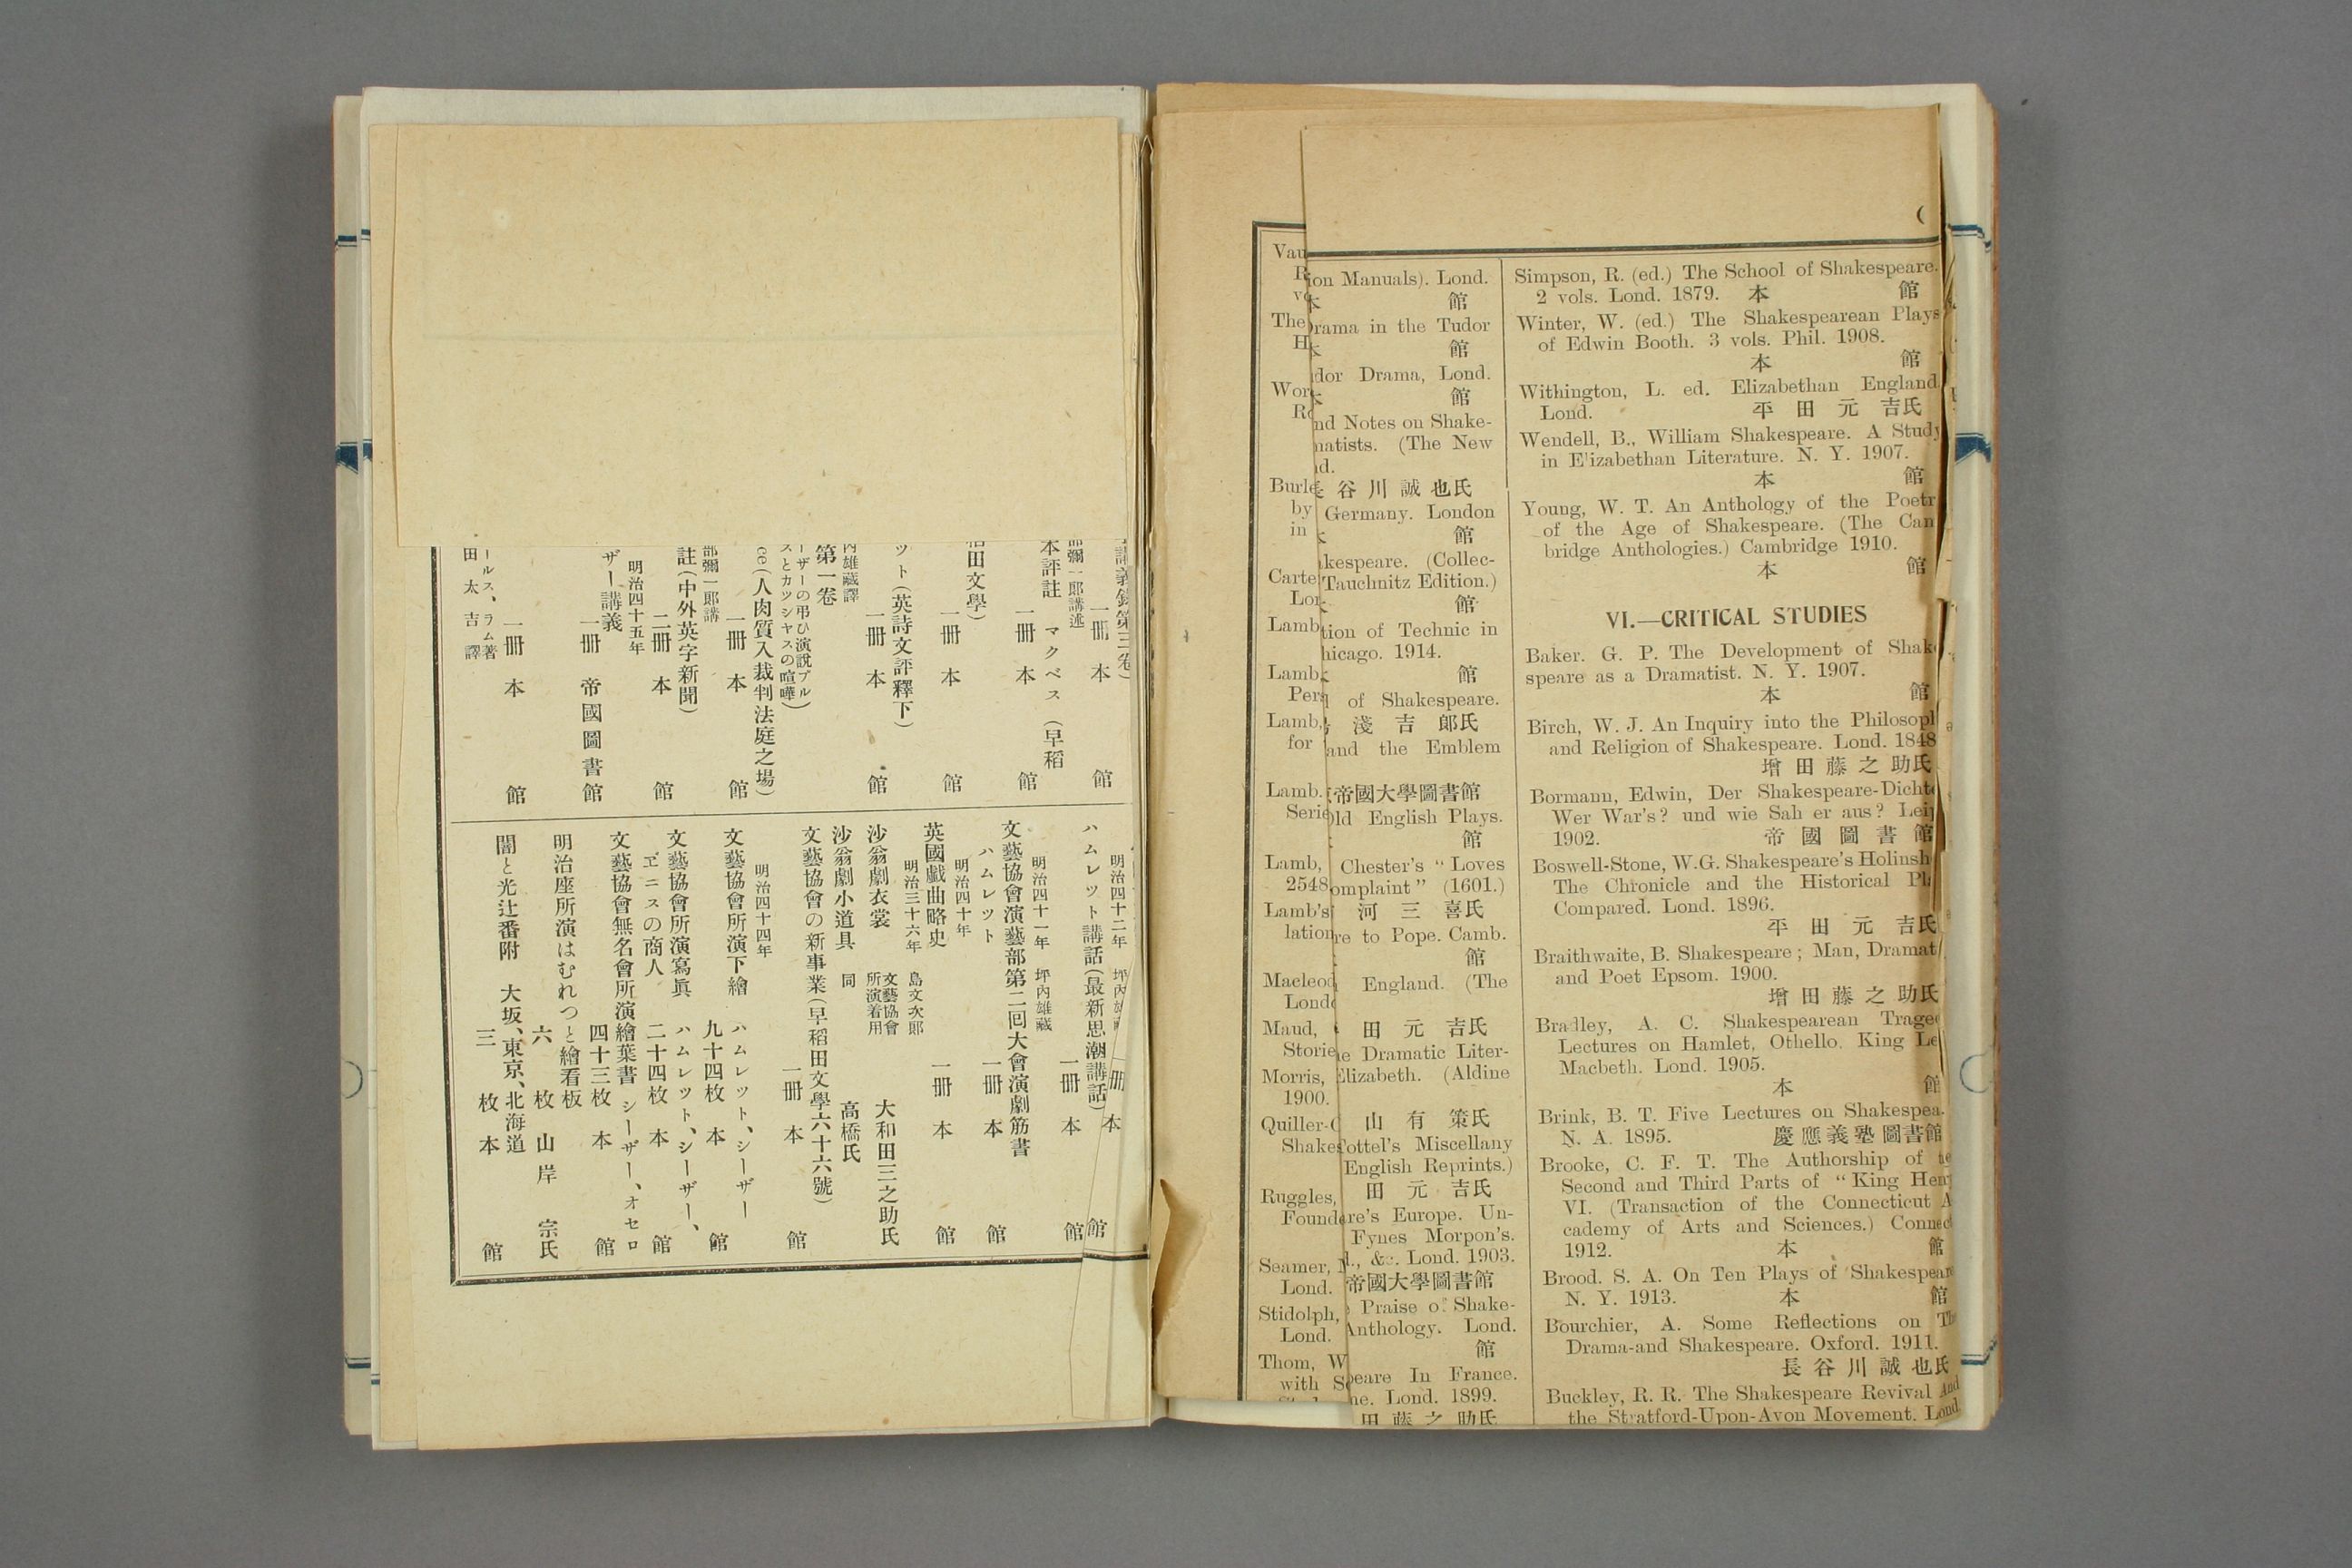 講義録第三卷)
一冊 本 館
部彌一郎講述
本評註 マクベス (早稻
一冊 本 館
稻田文學)
一冊 本 館
ット(英詩文評釋下)
一冊 本 館
內雄藏譯
第一卷
ーザーの弔ひ演說ブル)
スとカツシヤスの喧嘩)
ce(人肉質入裁判法庭之場)
一冊 本 館
部彌一郎講
註(中外英字新聞)
二冊 本 館
明治四十五年
ザー講義
一冊 帝國圖書館
一冊 本 館
ールス、ラム著
田太吉譯
明治四十二年 坪內雄
ハムレット講話(最新思潮講話)
一冊 本 館
明治四十一年 坪內雄藏
一冊 本 館
文藝協會演藝部第二回大會演劇筋書
ハムレット 一冊 本 館
明治四十年
英國戲曲略史 一冊 本 館
明治三十六年 島文次郎
沙翁劇衣裳 文藝協會所演着用 大和田三之助氏
沙翁劇小道具 同 高橋氏
文藝協會の新事業(早稻田文學六十六號)
一冊 本 館
明治四十四年
文藝協會所演下繪 ハムレット、シーザー
九十四枚 本 館
文藝協會所演寫眞 ハムレット、シーザー、
ヹニスの商人 二十四枚 本 館
文藝協會無名會所演繪葉書 シーザー、オセロ
四十三枚 本 館
明治座所演はむれつと繪看板
六枚 山岸 宗氏
闇と光辻番附 大坂、東京、北海道
三枚 本 館
Vau
The
H
Wor
Burle
by
in
Carte
Lon
Lamb
Lamb
Pera
Lamb,
for
Lamb.
Serie
Lamb,
2548
Lamb's
lation
Macleod
Londo
Maud,
Storie
Morris,
1900.
Quiller-C
Shakes
Ruggles,
Founde
Seamer,
Lond.
Stidolph,
Lond.
Thom, W
with S
ion Manuals). Lond.
本 館
rama in the Tudor
館
dor Drama, Lond.
館
nd Notes on Shake-
matists. (The New
nd.
長谷川誠也氏
Germany. London
館
kespeare. (Collec-
Tauchnitz Edition.)
館
tion of Technic in
hicago. 1914.
館
of Shakespeare.
淺吉郎氏
and the Emblem
帝國大學圖書館
Old English Plays.
館
Chester's " Loves
omplaint " (1601.)
河三喜氏
re to Pope. Camb.
館
England. (The
田元吉氏
e Dramatic Liter-
Elizabeth. (Aldine
山有策氏
Tottel's Miscellany
English Reprints.)
田元吉氏
re's Europe. Un-
Fynes Morpon's.
&c. Lond. 1903.
帝國大學圖書館
Praise of Shake-
Anthology. Lond.
館
peare In France.
ne. Lond. 1899.
田藤之助氏
(
Simpson, R. (ed.) The School of Shakespeare.
2 vols. Lond. 1879. 本 館
Winter, W. (ed.) The Shakespearean Plays
of Edwin Booth. 3 vols. Phil. 1908.
本 館
Withington, L. ed. Elizabethan England
Lond. 平田元吉氏
Wendell, B., William Shakespeare. A Study
in Elizabethan Literature. N. Y. 1907.
本 館
Young, W. T. An Anthology of the Poetr
of the Age of Shakespeare. (The Cam
bridge Anthologies.) Cambridge 1910.
本 館
VI.—CRITICAL STUDIES
Baker. G. P. The Development of Shake
speare as a Dramatist. N. Y. 1907.
本 館
Birch, W. J. An Inquiry into the Philosoph
and Religion of Shakespeare. Lond. 1848
增田藤之助氏
Bormann, Edwin, Der Shakespeare-Dichte
Wer War's? und wie Sah er aus? Leip
1902. 帝國圖書館
Boswell-Stone, W.G. Shakespeare's Holinsh
The Chronicle and the Historical Pl
Compared. Lond. 1896.
平田元吉氏
Braithwaite, B. Shakespeare ; Man, Dramat
and Poet Epsom. 1900.
增田藤之助氏
Bradley, A. C. Shakespearean Trage
Lectures on Hamlet, Othello, King Le
Macbeth. Lond. 1905.
本 館
Brink, B. T. Five Lectures on Shakespea.
N. A. 1895. 慶應義塾圖書館
Brooke, C. F. T. The Authorship of the
Second and Third Parts of " King Hen
VI. (Transaction of the Connecticut A
cademy of Arts and Sciences.) Connec
1912. 本 館
Brood. S. A. On Ten Plays of Shakespeare
N. Y. 1913. 本 館
Bourchier, A. Some Reflections on The
Drama-and Shakespeare. Oxford. 1911.
長谷川誠也氏
Buckley, R. R. The Shakespeare Revival And
the Stratford-Upon-Avon Movement. Lond.